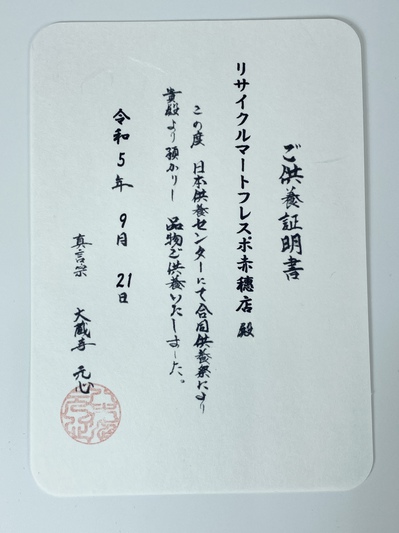 ご供養証明書
リサイクルマートフレスポ赤穂店 殿
この度 日本供養センターにて合同供養祭により
貴殿より預かりし 品物ご供養いたしました。
令和5年9月21日
真言宗 大蔵寺 元心